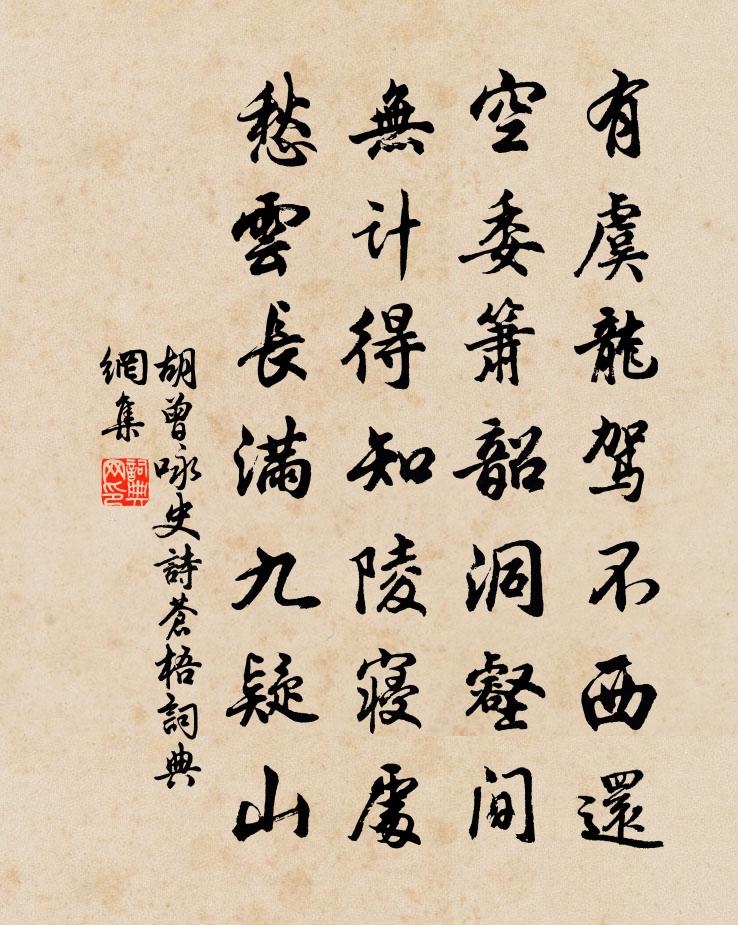 有虞龍駕不西還
空委簫韶洞壑間
無計得知陵寝處
愁雲長滿九疑山
胡曾咏史詩蒼梧詞典
網集
詞典
网印